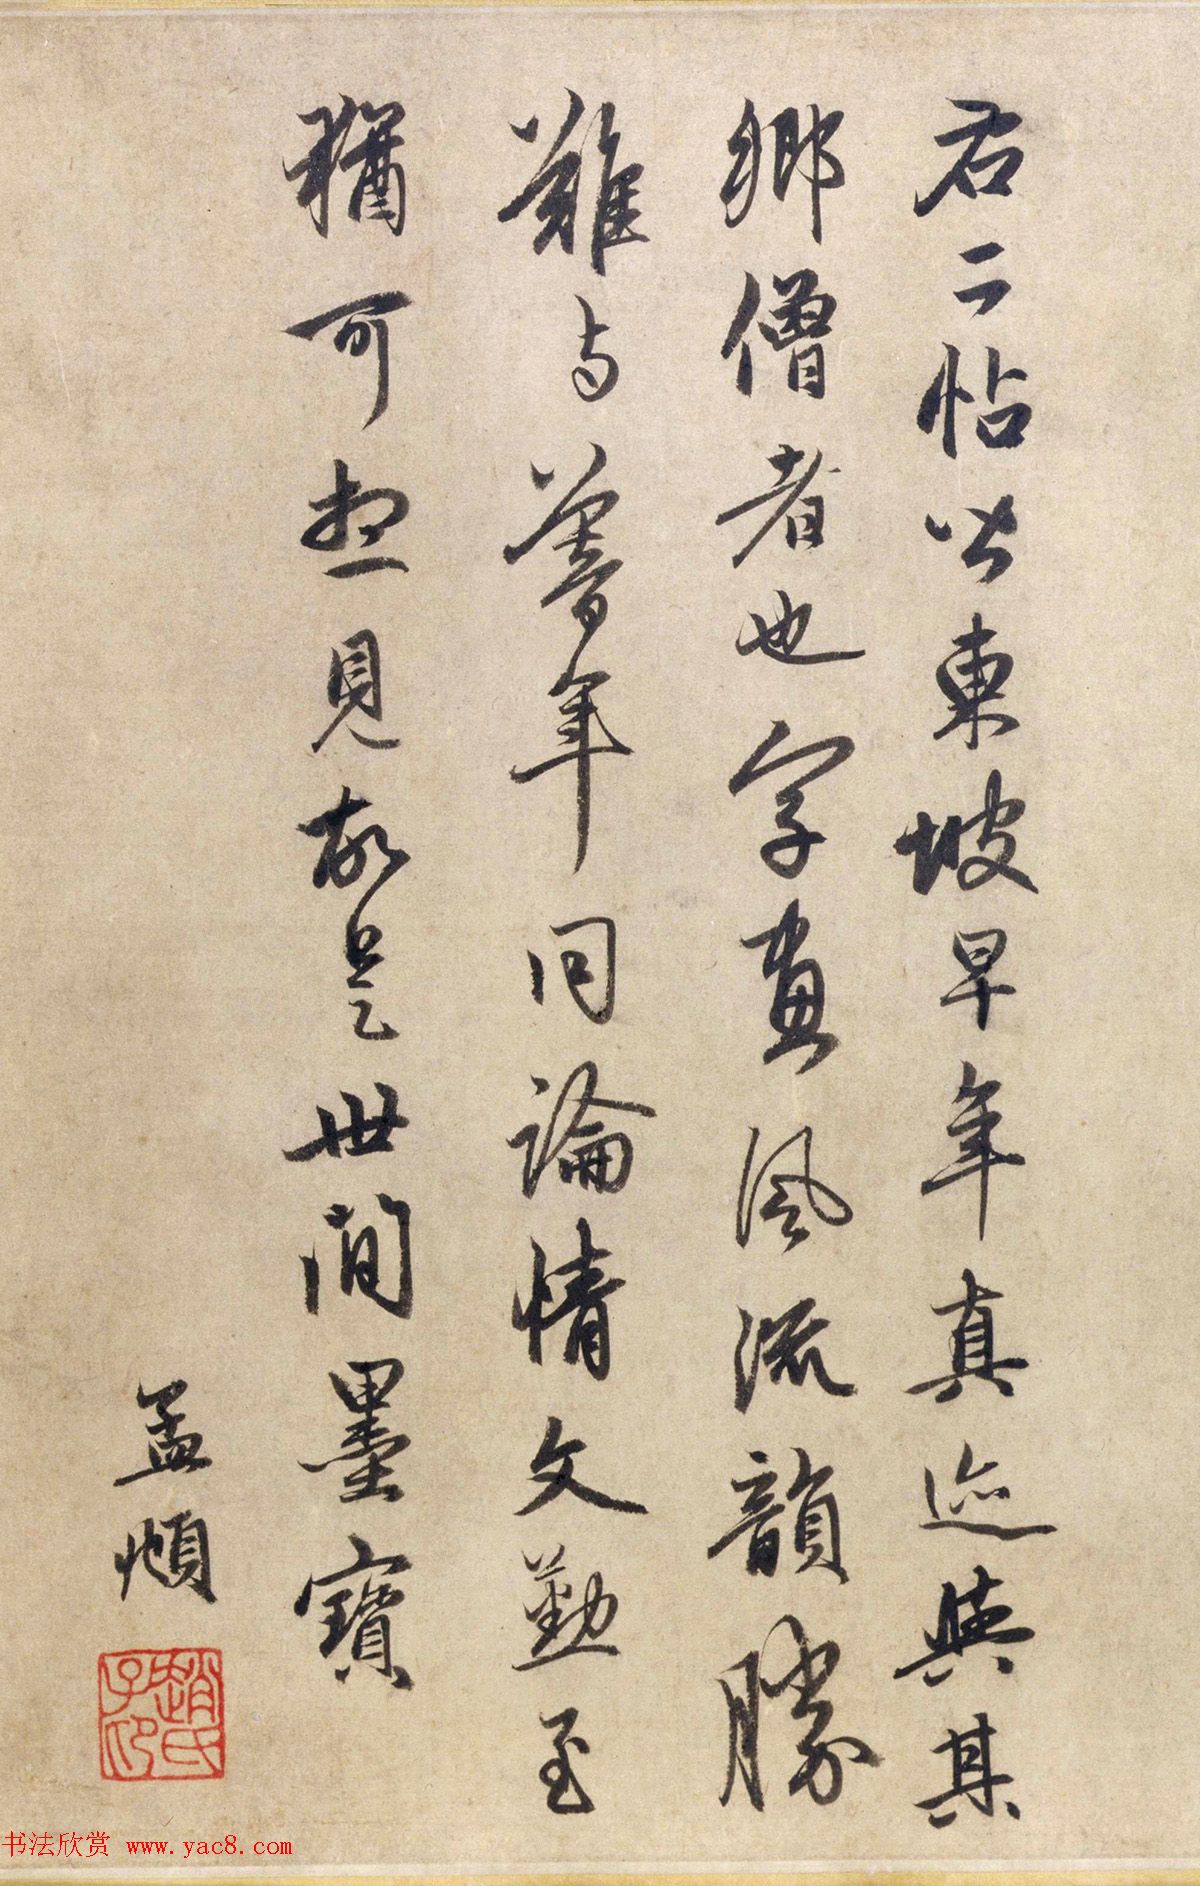 右二帖皆東坡早年真迹與其
鄉僧者也字畫風流韻勝
難与暮年同論情文勤至
猶可想見故是世間墨寶
孟頫
趙氏子印
书法欣赏 www.yac8.com